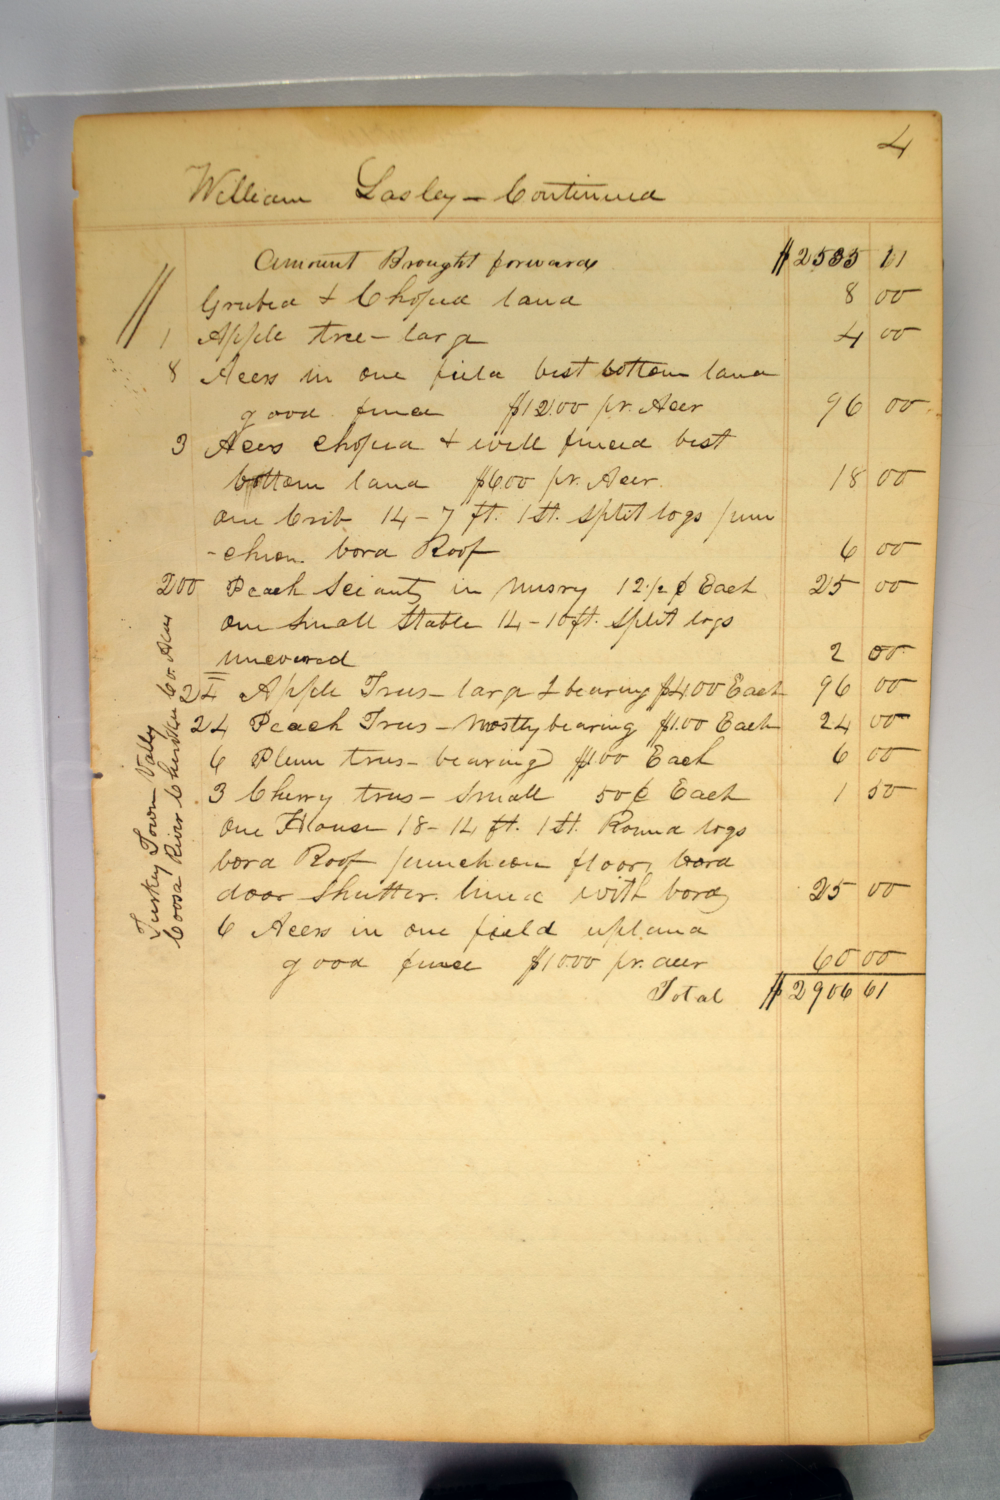 4
William Lasley - Continued
Amount Brought forward $2535 11
Grubed & Choped land 8 00
1 Apple tree - larg 4 00
8 Acers in one field best bottom land
good fence $12.00 pr. Acer 96 00
3 Acers choped & well fenced best
bottom land $6.00 pr. Acer. 18 00
one Crib 14 - 7 ft. 1 St. split logs pun
-cheon bord Roof 6 00
200 Peach Sciants in nusry 12 1/2 ¢ Each 25 00
one small Stable 14 - 10 ft. split logs
uncovered 2 00
24 Apple Trees - larg & bearing $4.00 Each 96 00
24 Peach Trees - mostly bearing $1.00 Each 24 00
6 Plum trees - bearing $1.00 Each 6 00
3 Cherry trees - small 50 ¢ Each 1 50
One House 18 - 14 ft. 1 St. Round logs
bord Roof puncheon floor bord
door shutter. lined with bord 25 00
6 Acers in one field upland
good fence $10.00 pr. acer 60 00
Total $2906 61
Turkey Town Vally
Coosa River Cherokee Co. Ala